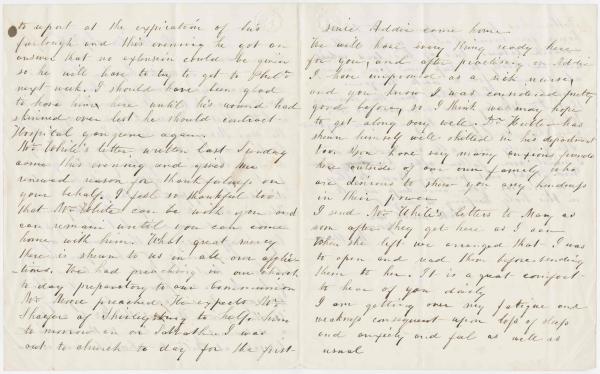 to report at the expiration of his
furlough and this evening he got an
answer that no extension could be given
so he will have to try to get to Phila
next week. I should have been glad
to have him here until his wound had
skinned over lest he should contract
Hospital gangrene again.
Mr White's letter written last Sunday
came this evening and gives me
renewed reason for thankfulness on
your behalf. I feel so thankful too
that Mr White can be with you and
can remain until you can come
home with him. What great mercy
there is shown to us in all our afflic-
tions. We had preaching in our church
to day preparatory to our communion
Mr Moore preached. He expects Mr
Shaefer of Shirleysburg to help him
to morrow on our Sabbath. I was
out to church to day for the first
since Addie came home
We will have every thing ready here
for you, and after practising on Addie
I have improved as a sick nurse,
and you know I was considered pretty
good before, so I think we may hope
to get along very well. Dr has
shown himself well skilled in his department
too. You have very many anxious friends
here outside of our own family who
are desirous to show you any kindness
in their power
I send Mr White's letters to Mary as
soon after they get here as I can
When she left we arranged that I was
to open and read them before sending
them to her. It is a great comfort
to hear of you daily
I am getting over my fatigue and
weakness consequent upon loss of sleep
and anxiety and feel as well as
usual